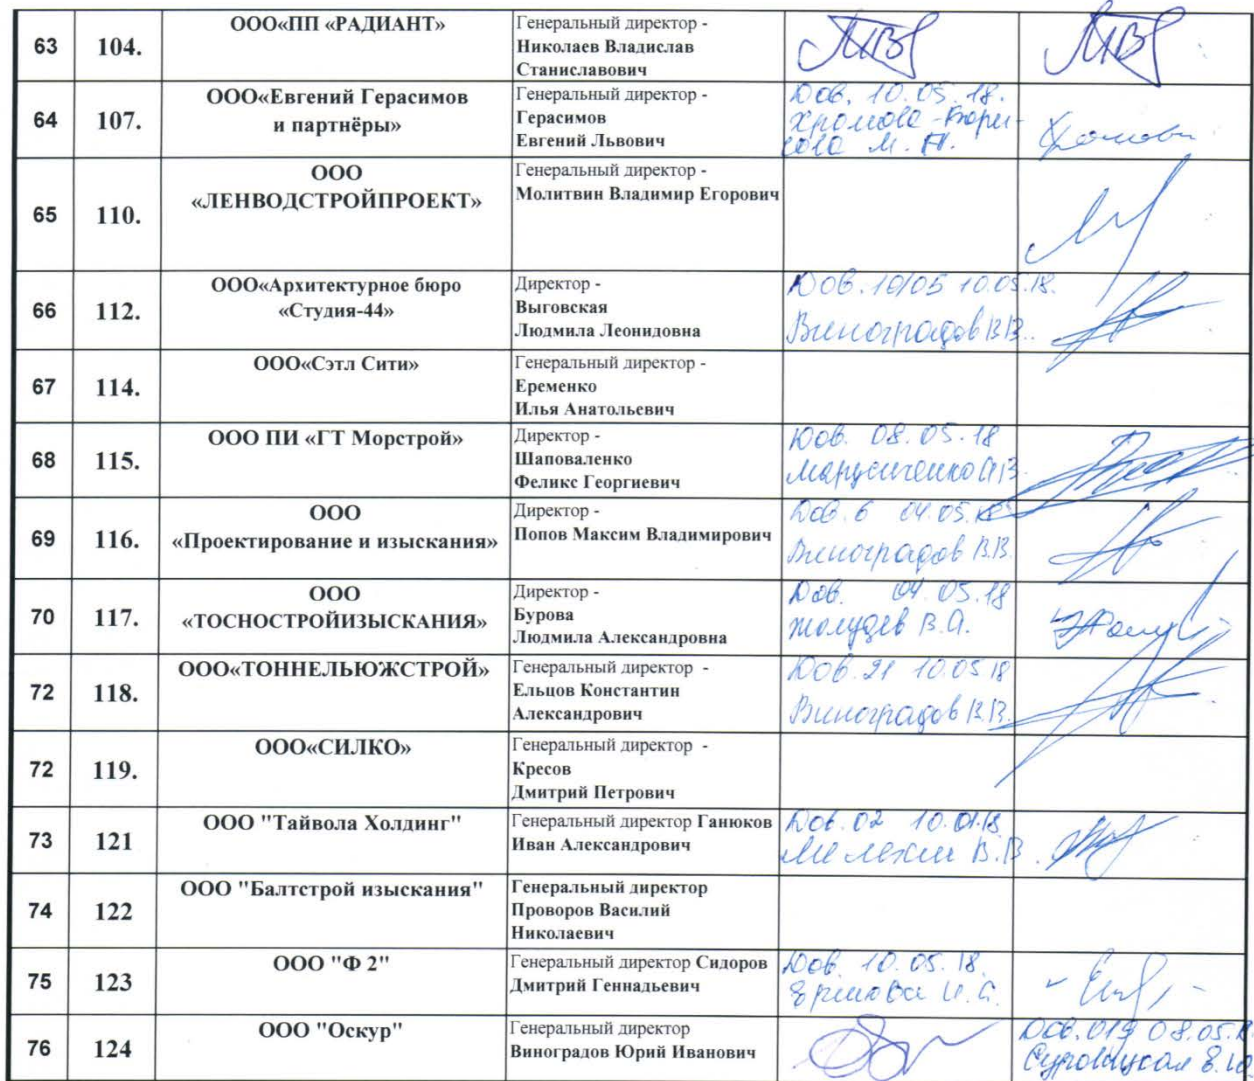 63 104. ООО«ПП «РАДИАНТ» Генеральный директор -
Николаев Владислав
Станиславович
64 107. ООО«Евгений Герасимов
и партнёры» Генеральный директор -
Герасимов
Евгений Львович Дов. 10.05.18.
М.
65 110. ООО
«ЛЕНВОДСТРОЙПРОЕКТ» Генеральный директор -
Молитвин Владимир Егорович
66 112. ООО«Архитектурное бюро
«Студия-44» Директор -
Выговская
Людмила Леонидовна Дов. 10/05 10.05.18.
Виноградов В.В.
67 114. ООО«Сэтл Сити» Генеральный директор -
Еременко
Илья Анатольевич
68 115. ООО ПИ «ГТ Морстрой» Директор -
Шаповаленко
Феликс Георгиевич Дов. 08.05.18
69 116. ООО
«Проектирование и изыскания» Директор -
Попов Максим Владимирович Дов. 6 04.05.18
Виноградов В.В.
70 117. ООО
«ТОСНОСТРОЙИЗЫСКАНИЯ» Директор -
Бурова
Людмила Александровна Дов. 04.05.18
Жолудев В.А.
72 118. ООО«ТОННЕЛЬЮЖСТРОЙ» Генеральный директор -
Ельцов Константин
Александрович Дов. 21 10.05 18
Виноградов В.В.
72 119. ООО«СИЛКО» Генеральный директор -
Кресов
Дмитрий Петрович
73 121 ООО "Тайвола Холдинг" Генеральный директор Ганюков
Иван Александрович Дов. 02 10.01.18
Мелехин В.В.
74 122 ООО "Балтстрой изыскания" Генеральный директор
Проворов Василий
Николаевич
75 123 ООО "Ф 2" Генеральный директор Сидоров
Дмитрий Геннадьевич Дов. 10.05.18.
76 124 ООО "Оскур" Генеральный директор
Виноградов Юрий Иванович Дов. 019 08.05.18